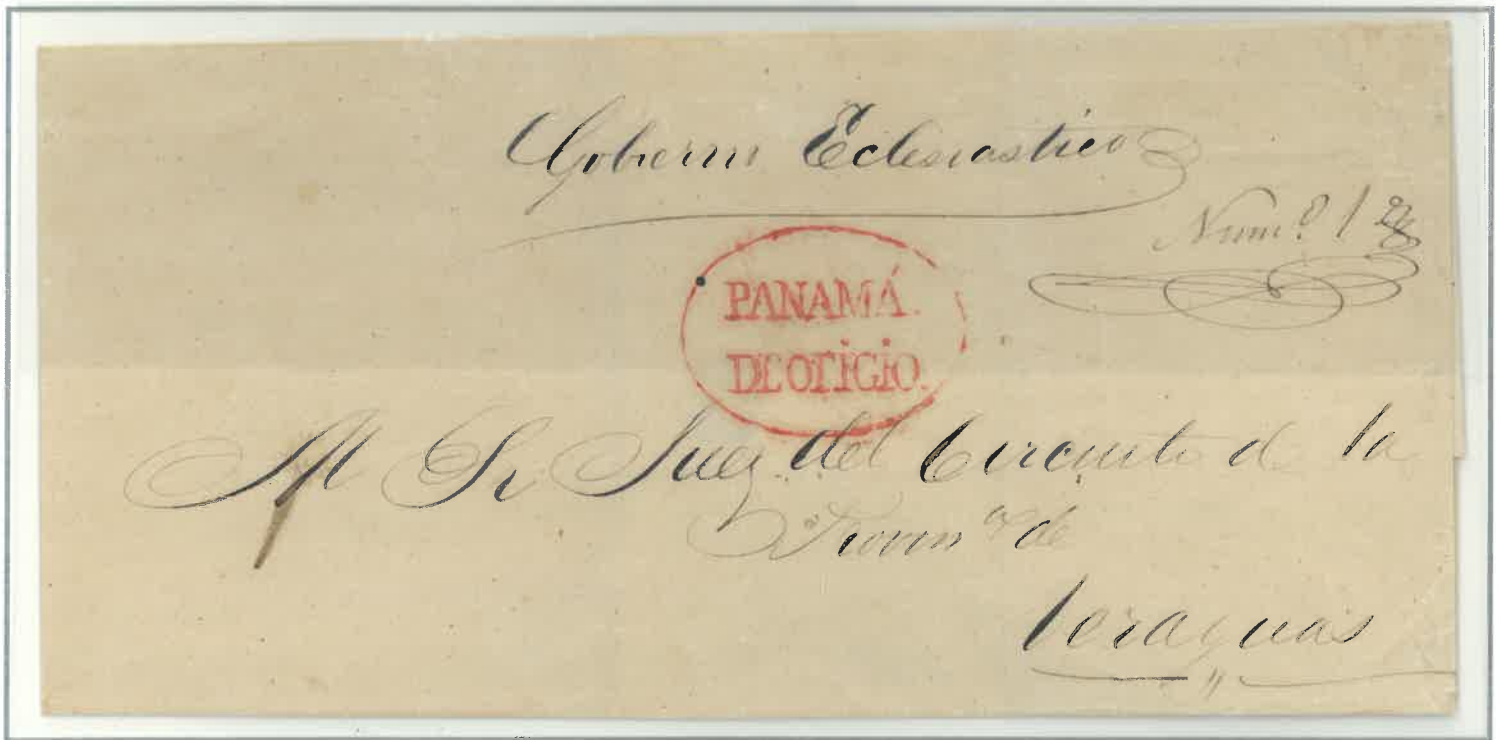 Gobierno Eclesiastico
Num.º 1
PANAMÁ.
DE OFICIO.
Al Sr Juez del Circuito de la
Provin.ª de
Veraguas